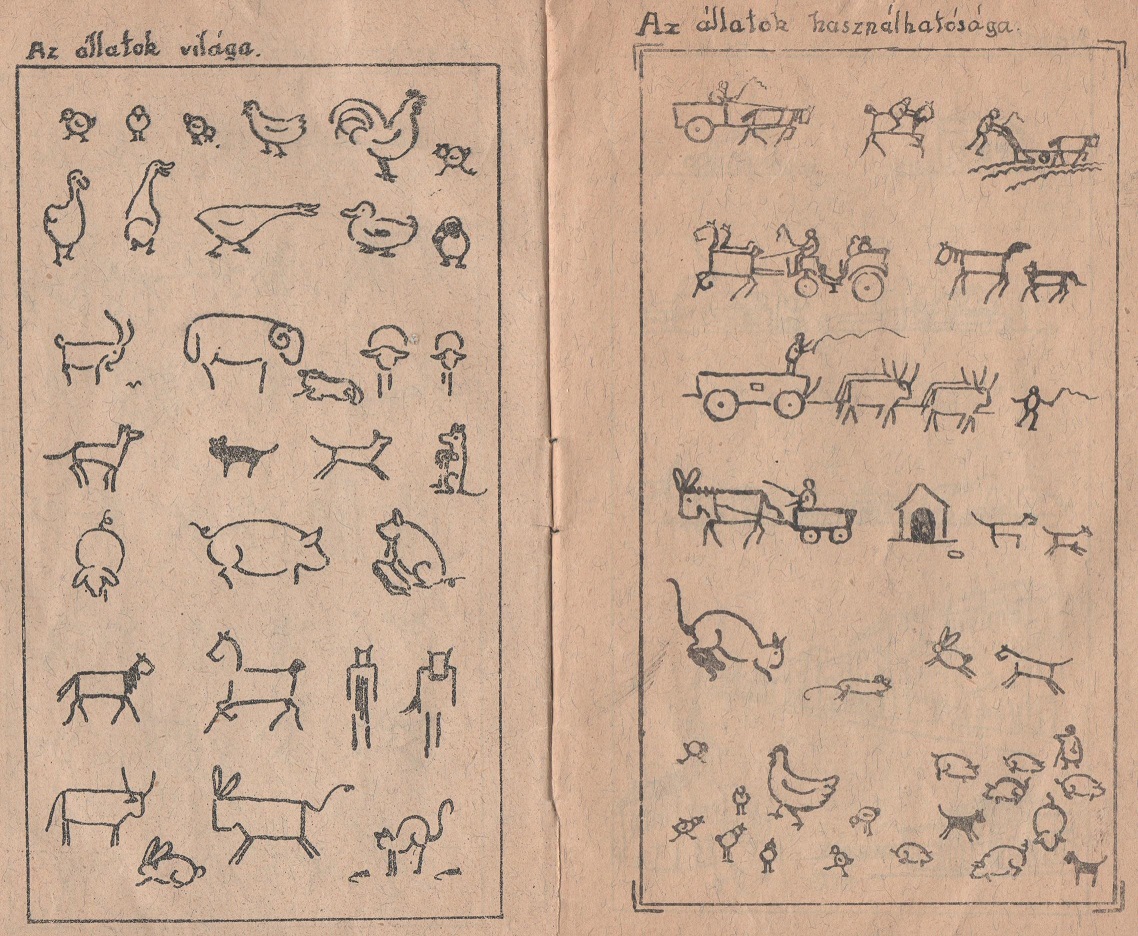 Az állatok világa.
Az állatok használhatósága.